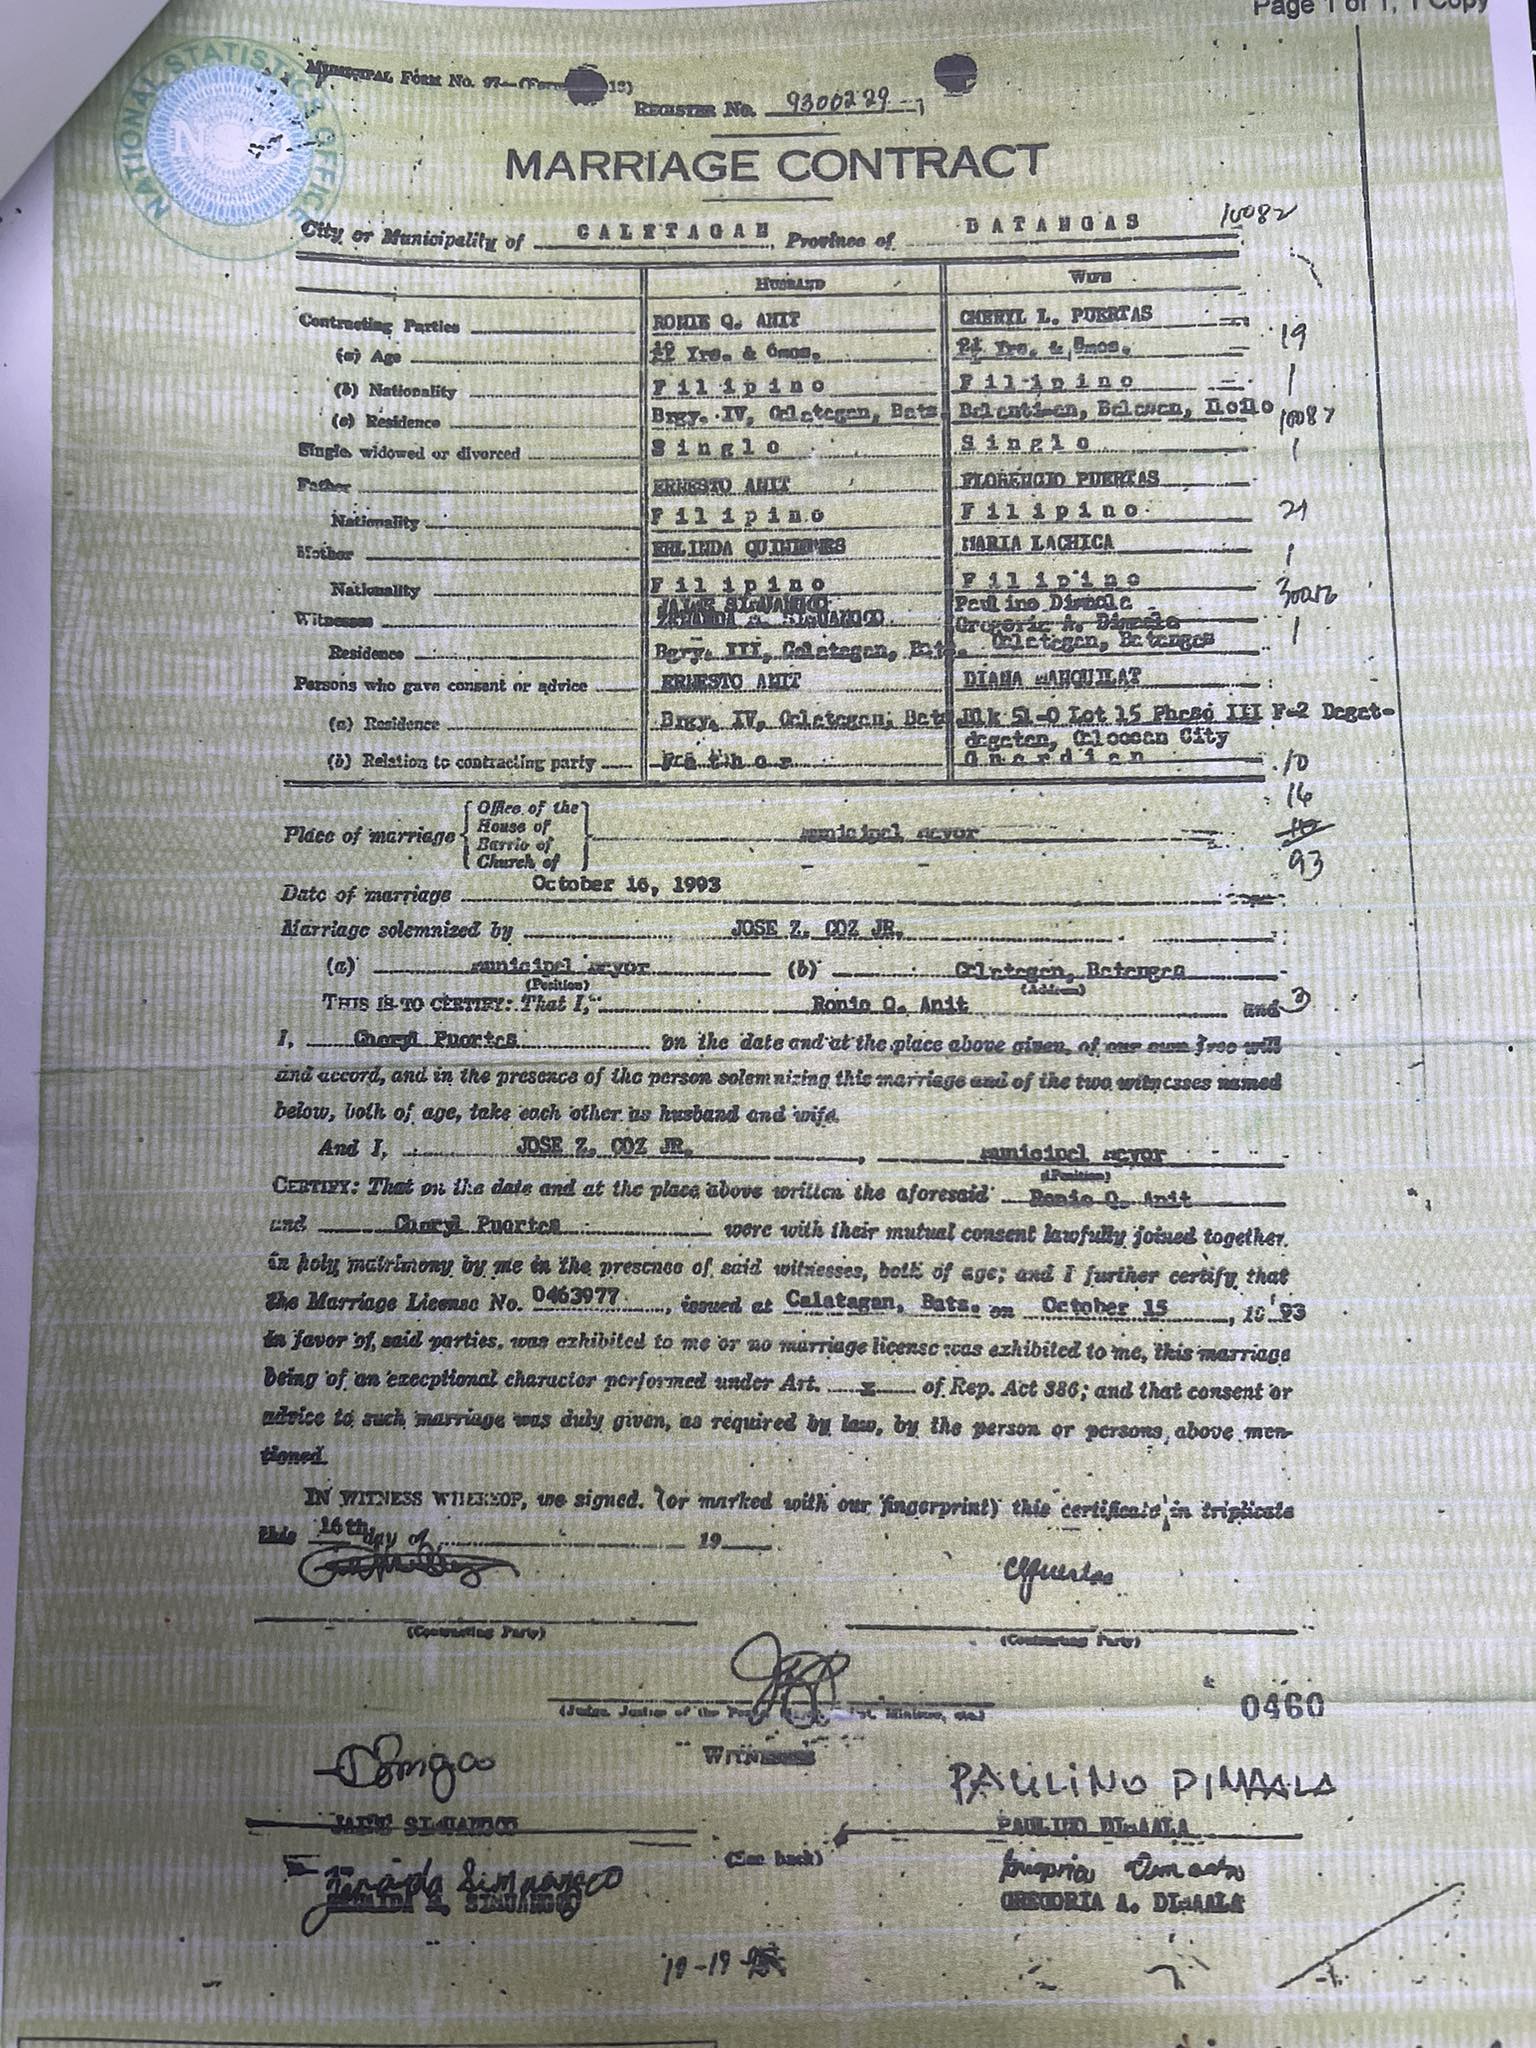 Page 1 of 1, 1 Copy
NATIONAL STATISTICS OFFICE
NSO
MUNICIPAL FORM No. 97—(Form 13)
REGISTER No. 9300229
MARRIAGE CONTRACT
City or Municipality of CALATAGAN, Province of BATANGAS 10082
HUSBAND WIFE
Contracting Parties RONIE Q. ANIT CHERYL L. PUERTAS
(a) Age 19 Yrs. & 6mos. 21 Yrs. & 8mos. 19
(b) Nationality Filipino Filipino 1
(c) Residence Brgy. IV, Calatagan, Bats. Balantian, Balasan, Iloilo 10082
Single, widowed or divorced Single Single 1
Father ERNESTO ANIT FLORENCIO PUERTAS
Nationality Filipino Filipino 21
Mother ERLINDA MARIA LACHICA 1
Nationality Filipino Filipino
Witnesses JAIME SIMUANGCO Paulino Dimaala
ZENAIDA M. SIMUANGCO Gregoria A. Dimaala 1
Residence Bgry. III, Calatagan, Bats. Calatagan, Batangas
Persons who gave consent or advice ERNESTO ANIT DIANA MANQUILAT
(a) Residence Brgy. IV, Calatagan, Bats. Blk 51-0 Lot 15 Phase III F-2 Dagat-
dagatan, Caloocan City
(b) Relation to contracting party Father Guardian 10
16
Place of marriage Office of the House of Barrio of Church of municipal mayor 10
93
Date of marriage October 16, 1993
Marriage solemnized by JOSE Z. COZ JR.
(a) municipal mayor (b) Calatagan, Batangas
(Position) (Address)
THIS IS TO CERTIFY: That I, Ronie Q. Anit and 3
I, Cheryl Puertas on the date and at the place above given, of our own free will
and accord, and in the presence of the person solemnizing this marriage and of the two witnesses named
below, both of age, take each other as husband and wife.
And I, JOSE Z. COZ JR., municipal mayor
(Position)
CERTIFY: That on the date and at the place above written the aforesaid Ronie Q. Anit
and Cheryl Puertas were with their mutual consent lawfully joined together
in holy matrimony by me in the presence of said witnesses, both of age; and I further certify that
the Marriage License No. 0463977, issued at Calatagan, Bats. on October 15, 19 93
in favor of said parties, was exhibited to me or no marriage license was exhibited to me, this marriage
being of an exceptional character performed under Art. x of Rep. Act 386; and that consent or
advice to such marriage was duly given, as required by law, by the person or persons above men-
tioned.
IN WITNESS WHEREOF, we signed (or marked with our fingerprint) this certificate in triplicate
this 16th day of 19
CLPuertas
(Contracting Party) (Contracting Party)
(Judge, Justice of the Minister, etc.)
0460
WITNESSES
PAULINO DIMAALA
JAIME SIMUANGCO PAULINO DIMAALA
(See back)
Zenaida Simuangco Gregoria Dimaala
ZENAIDA M. SIMUANGCO GREGORIA A. DIMAALA
10-19-